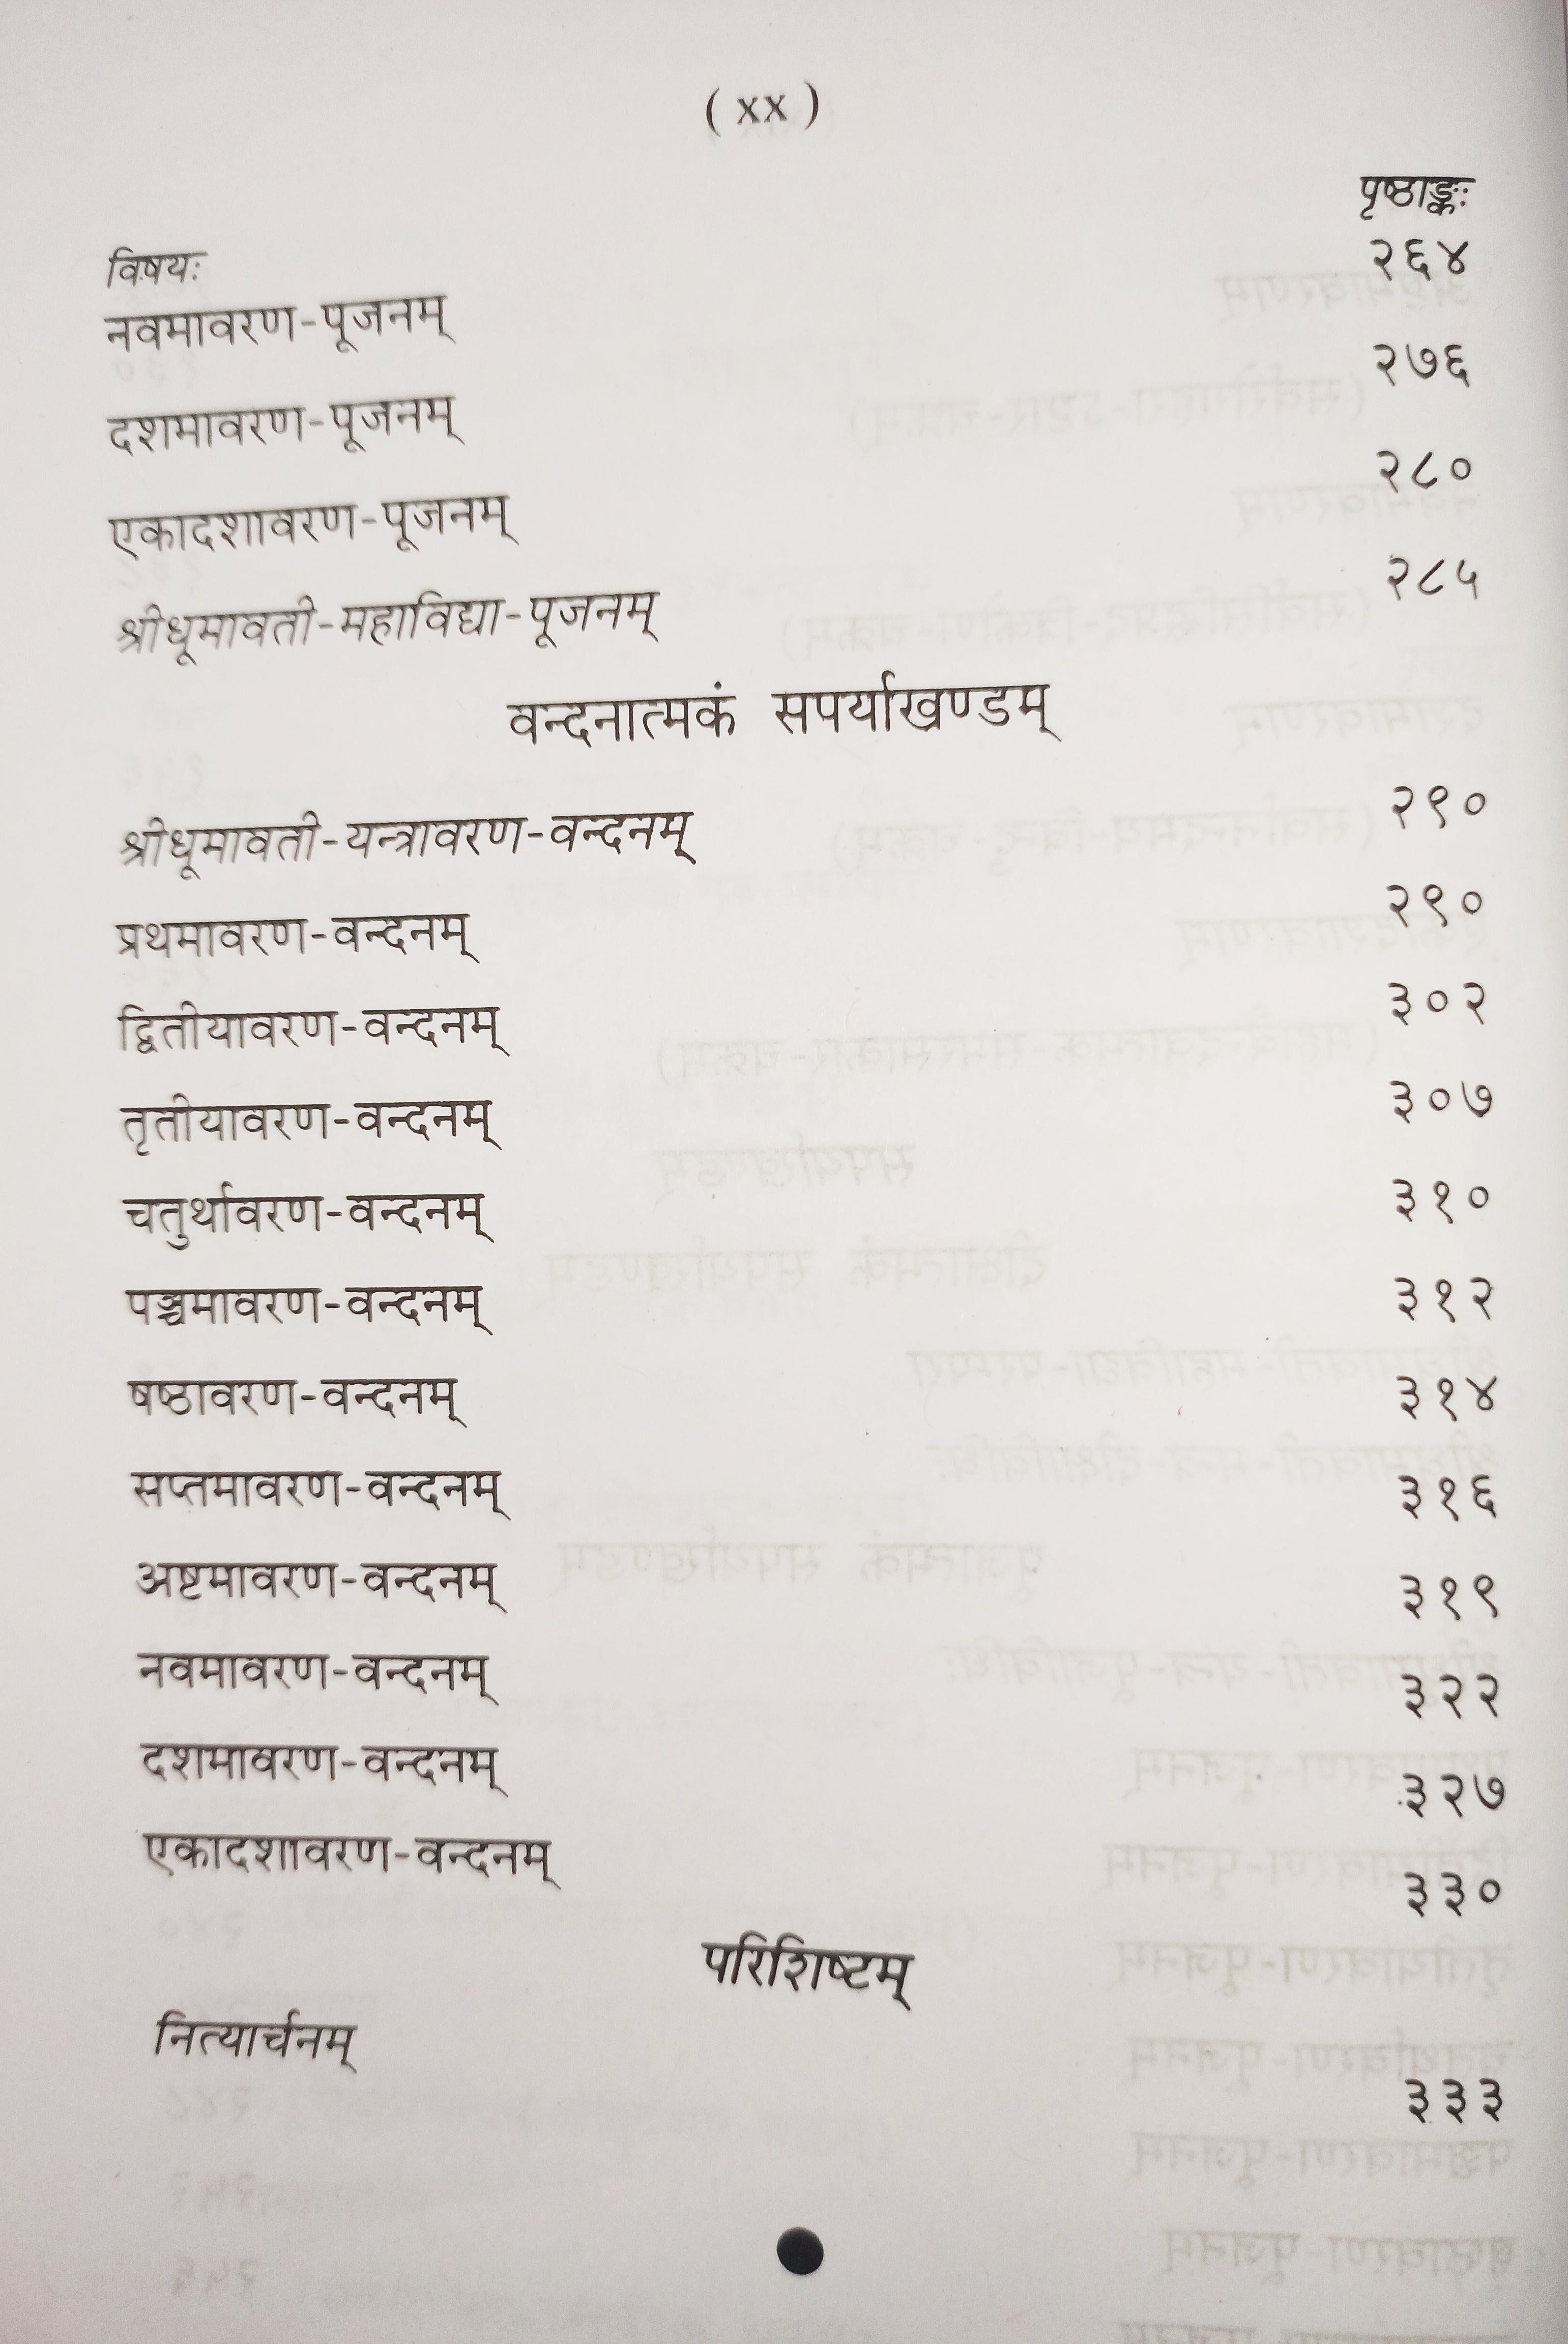 ( xx )
विषयः पृष्ठाङ्कः
नवमावरण-पूजनम् २६४
दशमावरण-पूजनम् २७६
एकादशावरण-पूजनम् २८०
श्रीधूमावती-महाविद्या-पूजनम् २८५
वन्दनात्मकं सपर्याखण्डम्
श्रीधूमावती-यन्त्रावरण-वन्दनम् २९०
प्रथमावरण-वन्दनम् २९०
द्वितीयावरण-वन्दनम् ३०२
तृतीयावरण-वन्दनम् ३०७
चतुर्थावरण-वन्दनम् ३१०
पञ्चमावरण-वन्दनम् ३१२
षष्ठावरण-वन्दनम् ३१४
सप्तमावरण-वन्दनम् ३१६
अष्टमावरण-वन्दनम् ३१९
नवमावरण-वन्दनम् ३२२
दशमावरण-वन्दनम् ३२७
एकादशावरण-वन्दनम् ३३०
परिशिष्टम्
नित्यार्चनम् ३३३